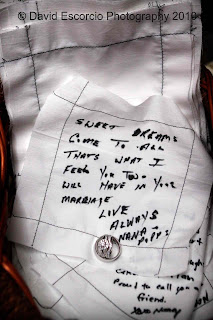 © David Escorcio Photography 2010
SWEET DREAMS
COME TO ALL
THAT'S WHAT I
FEEL YOU TWO
WILL HAVE IN YOUR
MARRIAGE
LOVE
ALWAYS
NANA +
POPPY
Proud to call you
friend.